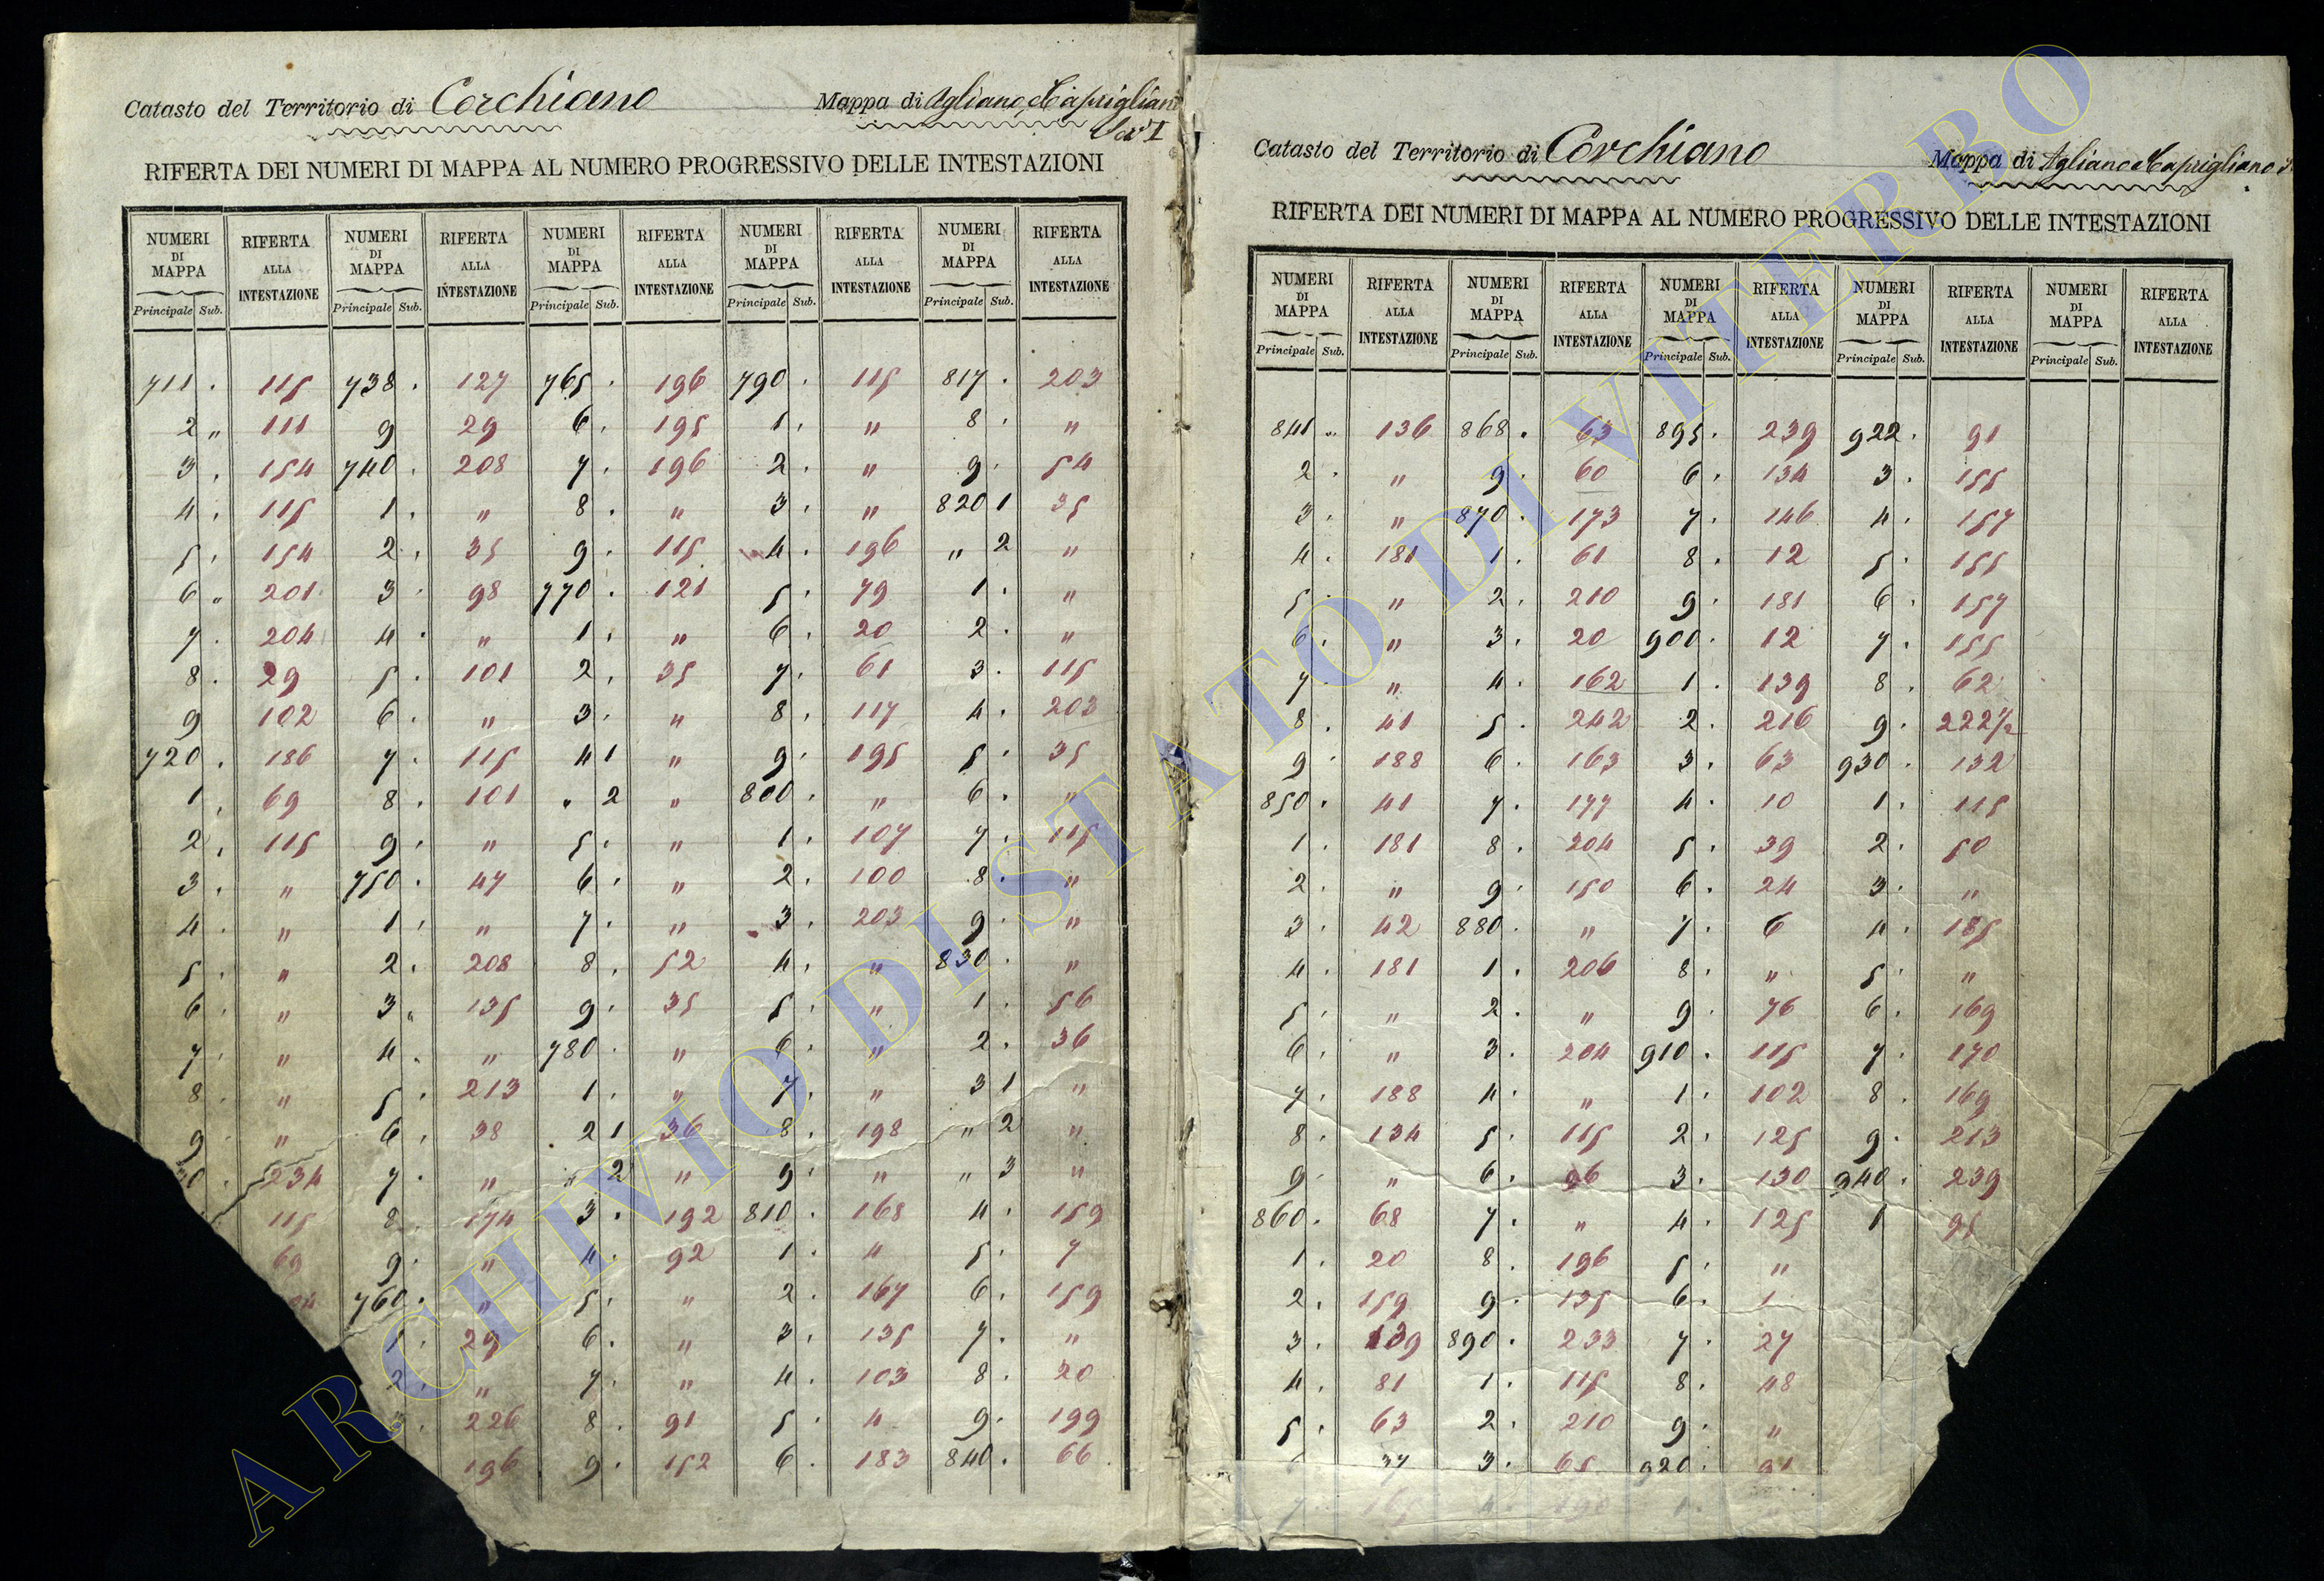 Catasto del Territorio di Corchiano Mappa di Agliano e Caprigliano
Sez. I
RIFERTA DEI NUMERI DI MAPPA AL NUMERO PROGRESSIVO DELLE INTESTAZIONI
NUMERI DI MAPPA RIFERTA ALLA INTESTAZIONE NUMERI DI MAPPA RIFERTA ALLA INTESTAZIONE NUMERI DI MAPPA RIFERTA ALLA INTESTAZIONE NUMERI DI MAPPA RIFERTA ALLA INTESTAZIONE NUMERI DI MAPPA RIFERTA ALLA INTESTAZIONE
Principale Sub. Principale Sub. Principale Sub. Principale Sub. Principale Sub.
711 . 115 738 . 127 765 . 196 790 . 115 817 . 203
2 " 111 9 29 6 . 195 1 . " 8 . "
3 . 154 740 . 208 7 . 196 2 . " 9 . 54
4 . 115 1 . " 8 . " 3 . " 820 1 35
5 . 154 2 . 35 9 . 115 4 . 196 " 2 "
6 " 201 3 . 98 770 . 121 5 . 79 1 . "
7 . 204 4 . " 1 . " 6 . 20 2 . "
8 . 29 5 . 101 2 . 35 7 . 61 3 . 115
9 102 6 . " 3 . " 8 . 117 4 . 203
720 . 186 7 . 115 4 1 " 9 . 195 5 . 35
1 . 69 8 . 101 " 2 " 800 . " 6 . "
2 . 115 9 . " 5 . " 1 . 107 7 . 115
3 . " 750 . 47 6 . " 2 . 100 8 . "
4 . " 1 . " 7 . " 3 . 203 9 . "
5 . " 2 . 208 8 . 52 4 . " 830 . "
6 . " 3 " 135 9 . 35 5 . " 1 . 56
7 . " 4 . " 780 . " 6 . " 2 . 36
8 . " 5 . 213 1 . " 7 . " 3 1 "
9 . " 6 . 38 2 1 36 8 . 198 " 2 "
. 234 7 . " " 2 " 9 . " " 3 "
115 8 . 174 3 . 192 810 . 168 4 . 159
69 9 . " 4 . 92 1 . 4 5 . 7
760 . " 5 . " 2 . 167 6 . 159
1 . 29 6 . " 3 . 135 7 . "
2 . " 7 . " 4 . 103 8 . 20
3 . 226 8 . 91 5 . 4 9 . 199
196 9 . 152 6 . 183 840 . 66
Catasto del Territorio di Corchiano Mappa di Agliano e Caprigliano
RIFERTA DEI NUMERI DI MAPPA AL NUMERO PROGRESSIVO DELLE INTESTAZIONI
NUMERI DI MAPPA RIFERTA ALLA INTESTAZIONE NUMERI DI MAPPA RIFERTA ALLA INTESTAZIONE NUMERI DI MAPPA RIFERTA ALLA INTESTAZIONE NUMERI DI MAPPA RIFERTA ALLA INTESTAZIONE NUMERI DI MAPPA RIFERTA ALLA INTESTAZIONE
Principale Sub. Principale Sub. Principale Sub. Principale Sub. Principale Sub.
841 " 136 868 . 63 895 . 239 922 . 91
2 . " 9 . 60 6 . 134 3 . 155
3 . " 870 . 173 7 . 146 4 . 157
4 . 181 1 . 61 8 . 12 5 . 155
5 . " 2 . 210 9 . 181 6 . 157
6 . " 3 . 20 900 . 12 7 . 155
7 . " 4 . 162 1 . 139 8 . 62
8 . 41 5 . 242 2 . 216 9 . 222½
9 . 188 6 . 163 3 . 63 930 . 132
850 . 41 7 . 177 4 . 10 1 . 115
1 . 181 8 . 204 5 . 39 2 . 50
2 . " 9 . 150 6 . 24 3 . "
3 . 42 880 . " 7 . 6 4 . 185
4 . 181 1 . 206 8 . " 5 . "
5 . " 2 . " 9 . 76 6 . 169
6 . " 3 . 204 910 . 115 7 . 170
7 . 188 4 . " 1 . 102 8 . 169
8 . 134 5 . 115 2 . 125 9 . 213
9 . " 6 . 96 3 . 130 940 . 239
860 . 68 7 . " 4 . 125 1 95
1 . 20 8 . 196 5 . "
2 . 159 9 . 135 6 . 1
3 . 139 890 . 233 7 . 27
4 . 81 1 . 115 8 . 48
5 . 63 2 . 210 9 . "
37 3 . 65 920 . 91
7 . 165 4 . 190 1 .
ARCHIVIO DI STATO DI VITERBO